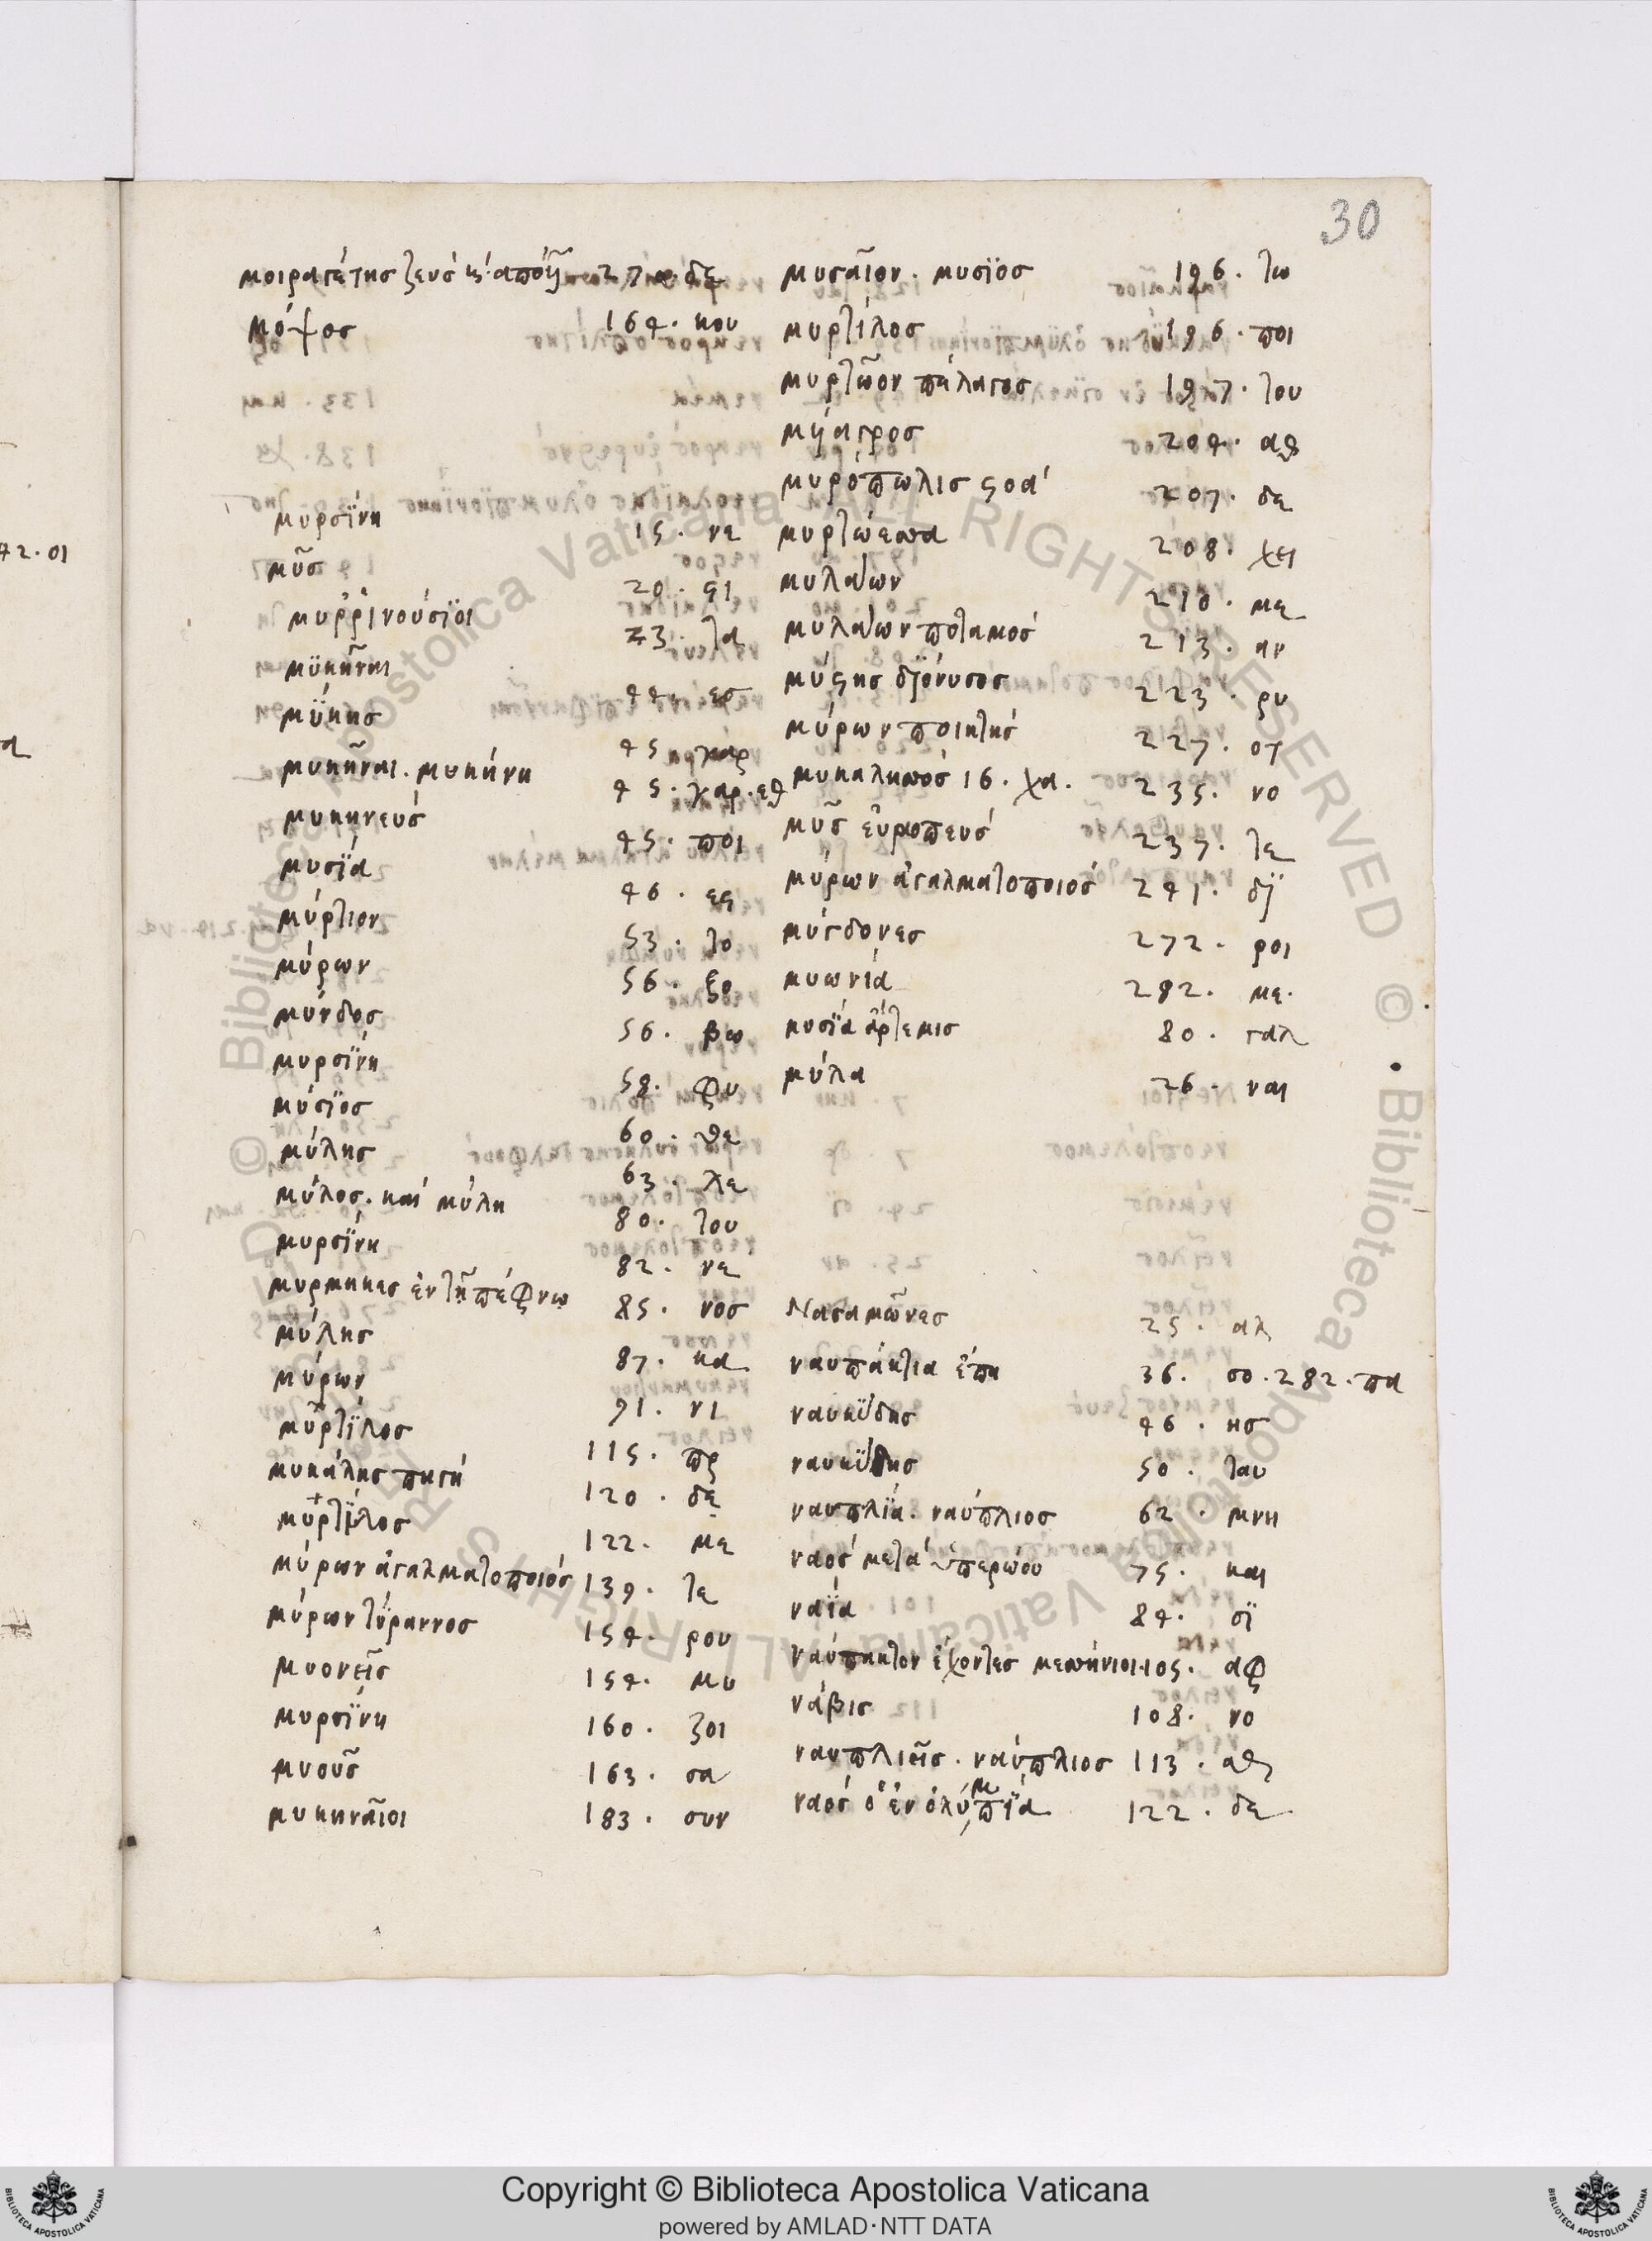 30
μόψος 164. κου
μυρσΐνη 15. νε
μῦσ 20. ϛι
μυῤῥινούσϊοι 23. τα
μϋκῆναι 44. εσ
μΰκης 45 γαρ
μυκῆναι. μυκήνη 45. γαρ. εθ
μυκηνεύς 45. ποι
μυσΐα 46. εϛ
μύρτιον 53. το
μύρων 56. ξο
μύνδος 56. βω
μυρσΐνη 58. φυ
μύσϊος 60. θε
μύλης 63. λε
μύλος. καὶ μύλη 80. του
μυρσΐνη 82. νε
μυρμηκες ἐν τῆ πέφνω 85. νοσ
μύλης 87. κα
μύρων 91. νι
μῦρτΐλος 115. πρ
μυκάλης πηγή 120. δε
μυρτΐλος 122. με
μύρων ἀγαλματοποιός 139. τε
μύρων τύραννος 154. ρου
μυονεῖς 154. μυ
μυρσΐνη 160. ζοι
μυοῦς 163. σα
μυκηναῖοι 183. συν
μυσαῖον. μυσϊος 196. τω
μυρτίλος 196. ποι
μυρτῶον πέλαγος 197. του
μύαγρος 204. αθ
μυρόπωλις ϛοὰ 207. δε
μυρτώεσσα 208. χει
μυλάων 210. με
μυλάων ποταμός 213. αν
μύϛης δϊόνυσος 223. ρυ
μύρων ποιητής 227. οτ
μυκαλησσός 16. χα. 235. νο
μῦς εὐρωπεύς 235. τε
μύρων ἀγαλματοποιός 241. δϊ
μύγδονες 272. ροι
μυωνία 282. με.
μυσΐα ἄρτεμις 80. γαλ
μύλα 26. ναι
Νασαμῶνες 25. αλ
ναυπάκτια ἔπη 36. σο. 282. πα
ναυκΰδης 46. ησ
ναυκΰδης 50. ταυ
ναυπλΐα. ναύπλιος 62. μνη
ναός μετὰ ὑπερώου 75. και
ναΐα 84. σϊ
ναύπακτον ἔχοντες μεσσήνιοι 105. αφ
νάβις 108. νο
ναυπλιεῖς. ναύπλιος 113. αθ
ναός ὁ ἐν ὀλυμπΐα 122. δε
Copyright © Biblioteca Apostolica Vaticana
powered by AMLAD·NTT DATA